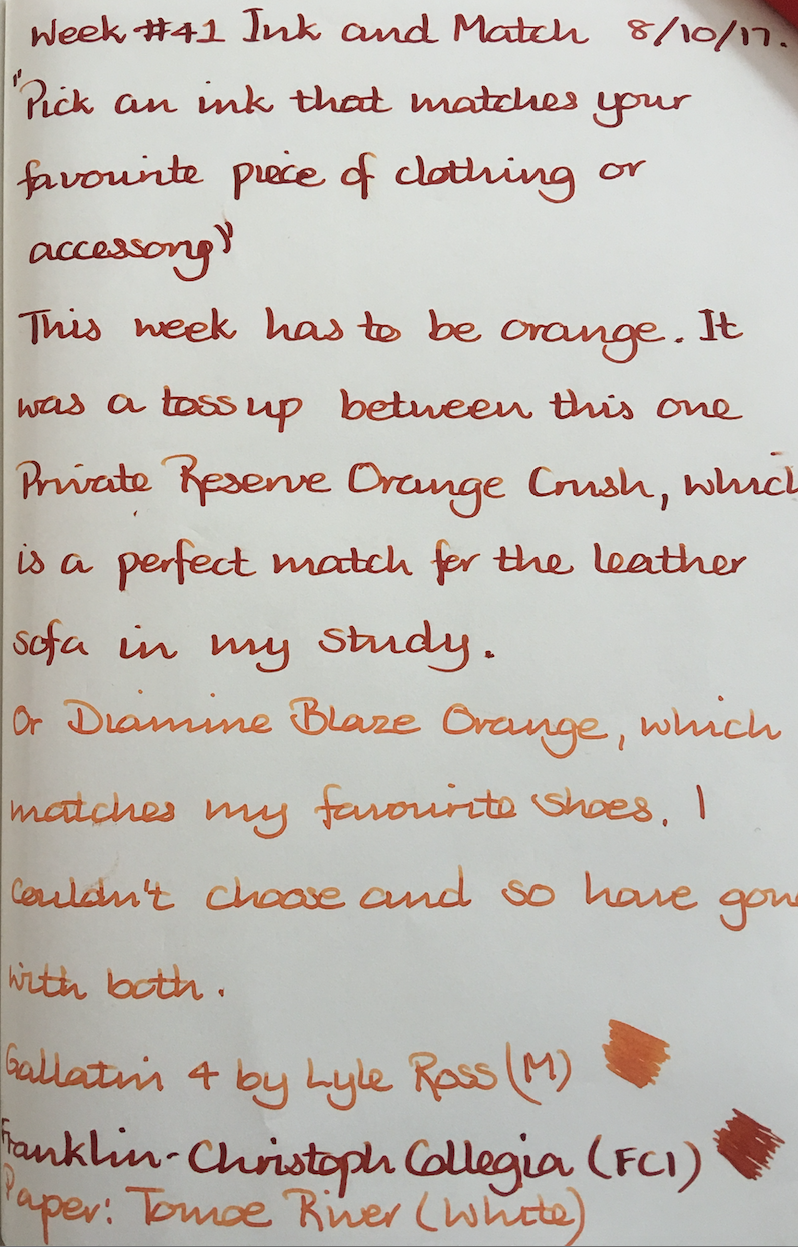 Week #41 Ink and Match 8/10/17.
"Pick an ink that matches your
favourite piece of clothing or
accessory"
This week has to be orange. It
was a toss up between this one
Private Reserve Orange Crush, which
is a perfect match for the leather
sofa in my study.
Or Diamine Blaze Orange, which
matches my favourite shoes. I
couldn't choose and so have gon
with both.
Gallatin 4 by Lyle Ross (M)
Franklin-Christoph Collegia (FCI)
Paper: Tomoe River (White)